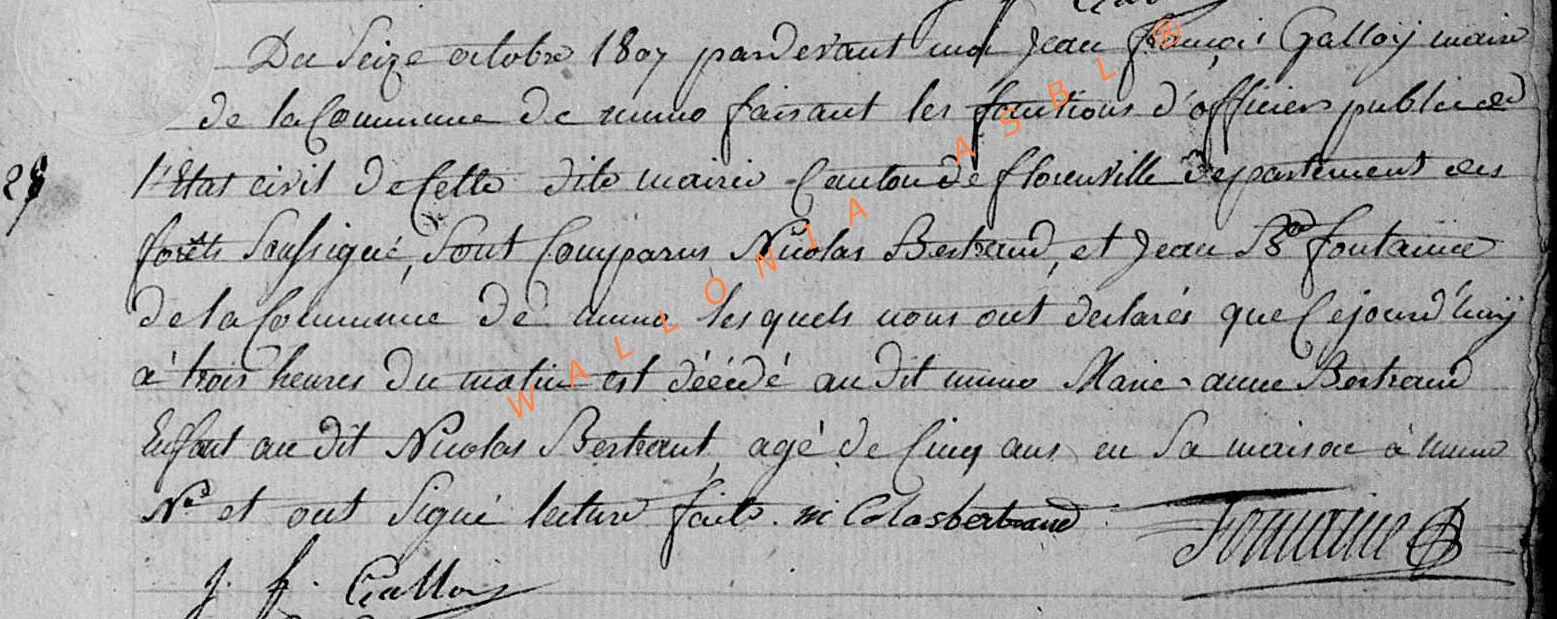 Du Seize octobre 1807 pardevant moi Jean françois Galloÿ maire
de la Commune de muno faisant les fonctions d'officier public de
29
l'Etat civil de Cette dite mairie Canton de florenville département des
forêts Soussigné, Sont Comparus Nicolas Bertrand, et Jean Bte fontaine
de la Commune de muno lesquels nous ont declarés que Cejourd'huÿ
à trois heures du matin est décédé au dit muno Marie-anne Bertrand
Enfant au dit Nicolas Bertrant, agé de Cinq ans en Sa maison à muno
No et ont Signé lecture faite. ni Colasbertrand Fontaine
J. f. Galloi
WALLONIA ASBL ®